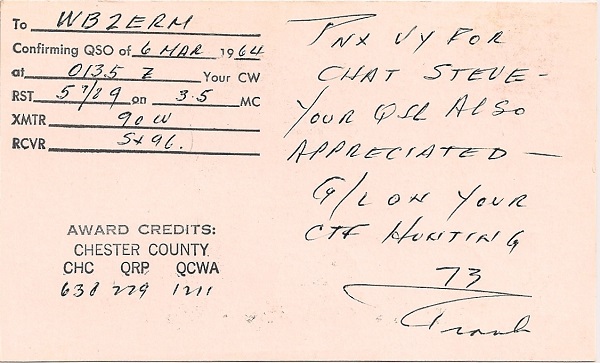 To WB2ERM
Confirming QSO of 6 MAR 1964
at 0135 Z Your CW
RST 579 on 3.5 MC
XMTR 90 W
RCVR SX96.
AWARD CREDITS:
CHESTER COUNTY
CHC QRP QCWA
638 229 1211
TNX VY FOR
CHAT STEVE -
YOUR QSL ALSO
APPRECIATED —
G/L ON YOUR
CTF HUNTING
73
Frank